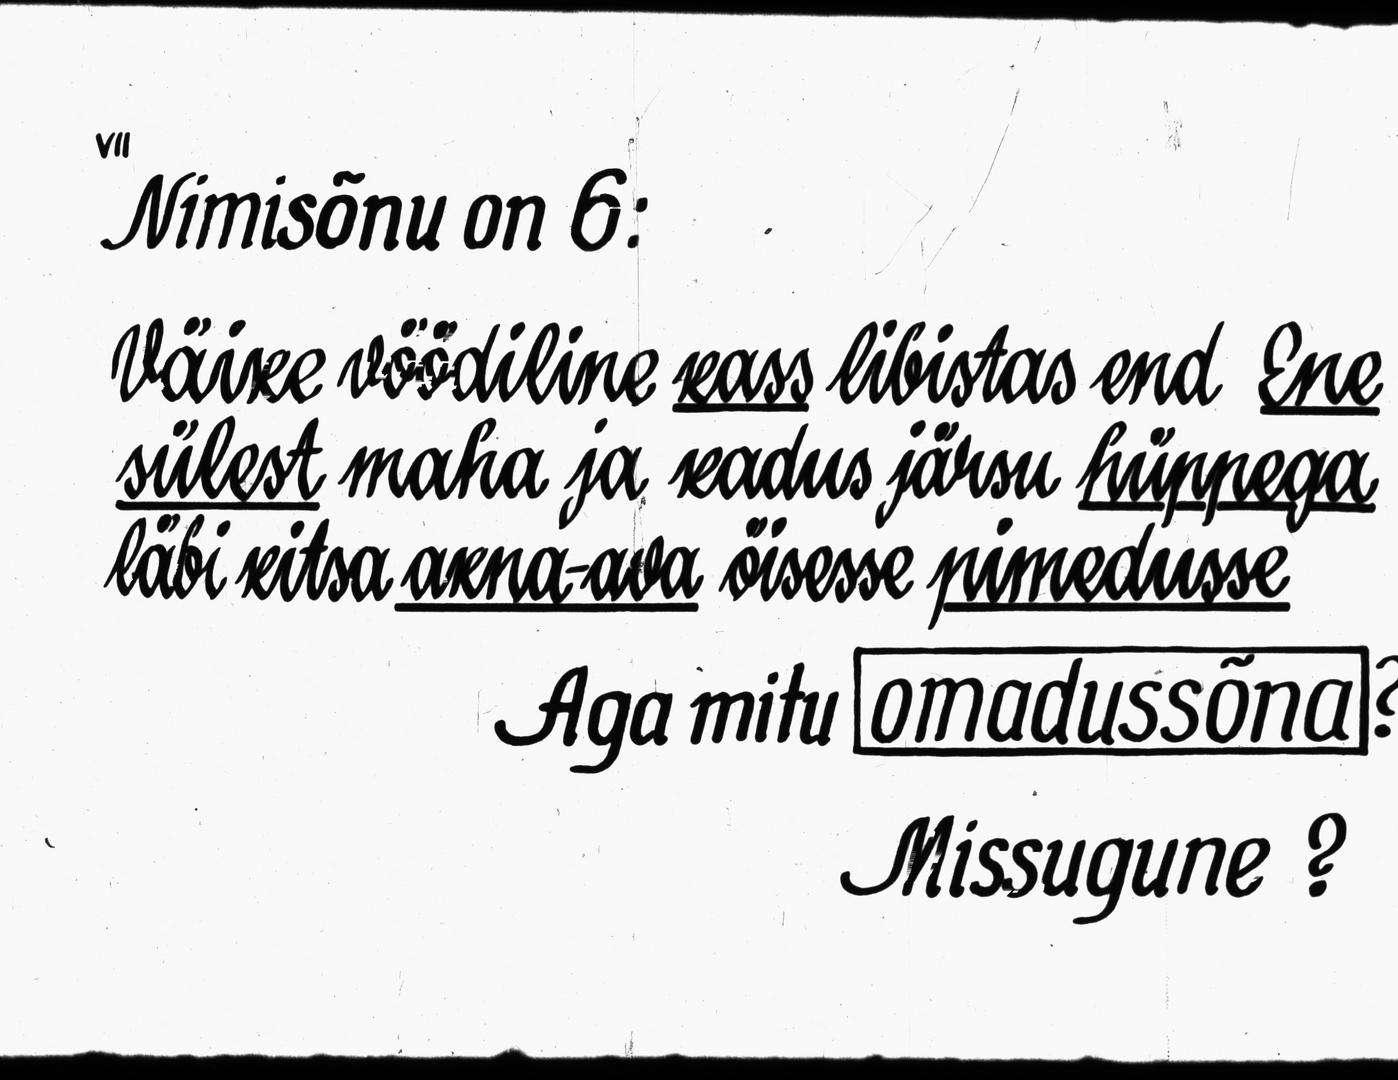 VII
Nimisõnu on 6:
Väike vöödiline kass libistas end Ene
sülest maha ja kadus järsu hüppega
läbi kitsa akna-ava öisesse pimedusse
Aga mitu omadussõna?
Missugune ?